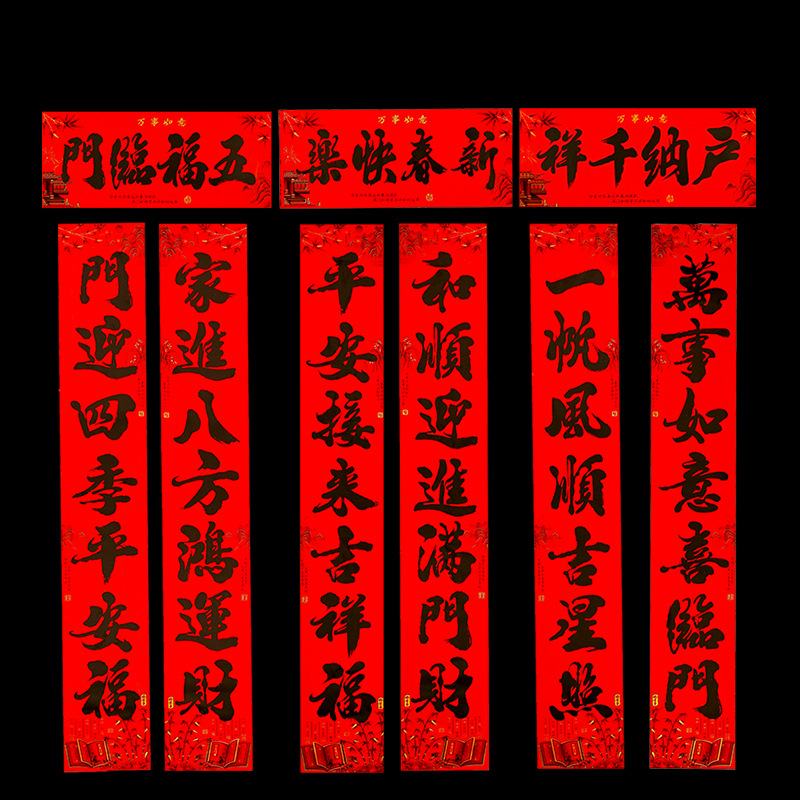 万事如意
五福臨門
万事如意
新春快樂
万事如意
户納千祥
門迎四季平安福
家進八方鴻運財
平安接来吉祥福
和順迎進满門財
一帆風順吉星照
萬事如意喜臨門